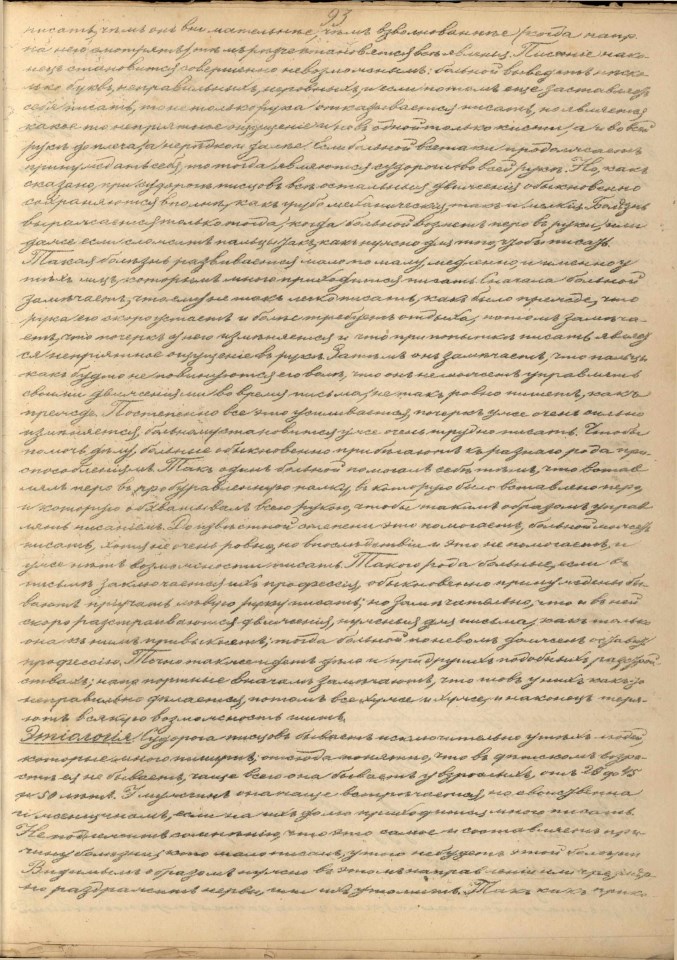 93
писать, чѣмъ онъ внимательнѣе, чѣмъ взволнованнѣе (когда напр.
на него смотрятъ) тѣмъ рѣзче становятся всѣ явленія. Писаніе нако-
нецъ становится совершенно невозможнымъ: больной выведетъ нѣско-
лько буквъ, неправильныхъ, неровныхъ, и если потомъ еще заставляетъ
себя писать, то не только рука отказывается писать, но является
какое то непріятное ощущеніе и не въ одной только кисти, а и во всей
рукѣ до плеча, а нерѣдко и далѣе. Если больной всетаки продолжаетъ
принуждать себя, то тогда являются судороги во всей рукѣ. Но, какъ
сказано, при судорогѣ писцовъ всѣ остальныя движенія обыкновенно
сохраняются вполнѣ, какъ грубо механическія, такъ и мелкія. Болѣзнь
выражается только тогда, когда больной возьметъ перо въ руки, или
даже если сложитъ пальцы такъ, какъ нужно для того, чтобы писать.
Такая болѣзнь развивается мало по малу, медленно, и именно у
тѣхъ лицъ, которымъ много приходится писать. Сначала больной
замѣчаетъ, что ему не такъ легко писать, какъ было прежде, что
рука его скоро устаетъ и больше требуетъ отдыха, потомъ замѣча-
етъ, что почеркъ у него измѣняется и что при попыткѣ писать являет-
ся непріятное ощущеніе въ рукѣ. Затѣмъ онъ замѣчаетъ, что пальцы
какъ будто не повинуются его волѣ, что онъ не можетъ управлять
своими движеніями во время письма, не такъ ровно пишетъ, какъ
прежде. Постепенно все это усиливается, почеркъ уже очень сильно
измѣняется, больному становится уже очень трудно писать. Чтобы
помочь дѣлу, больные обыкновенно прибѣгаютъ къ разнаго рода при-
способленіямъ. Такъ одинъ больной помогалъ себѣ тѣмъ, что встав-
лялъ перо въ пробуравленную палку, въ которую было вставлено перо,
и которую обхватывалъ всею рукою, чтобы такимъ образомъ управ-
лять писаніемъ. До извѣстной степени это помогаетъ, больной можетъ
писать, хотя не очень ровно, но впослѣдствіи и это не помогаетъ, и
уже нѣтъ возможности писать. Такого рода больные, если въ
письмѣ заключается ихъ профессія, обыкновенно принуждены бы-
ваютъ пріучать лѣвую руку писать; но замѣчательно, что и въ ней
скоро разстраиваются движенія, нужныя для письма, какъ только
она къ нимъ привыкнетъ; тогда больной поневолѣ долженъ оставить
профессію. Точно также идетъ дѣло и при другихъ подобныхъ разстрой-
ствахъ; напр. портные вначалѣ замѣчаютъ, что шовъ у нихъ какъ-то
неправильно дѣлается, потомъ все хуже и хуже, и наконецъ теря-
ютъ всякую возможность шить.
Этіологія. Судорога писцовъ бываетъ исключительно у тѣхъ людей,
которые много пишутъ; отсюда понятно, что въ дѣтскомъ возра-
стѣ ея не бываетъ, чаще всего она бываетъ у взрослыхъ, отъ 20 до 45
и 50 лѣтъ. У мужчинъ она чаще встрѣчается, но свойственна
и женщинамъ, если на ихъ долю приходится много писать.
Не подлежитъ сомнѣнію, что это самое и составляетъ при-
чину болѣзни; кто мало писалъ, у того не будетъ этой болѣзни.
Видимымъ образомъ нужно въ этомъ направленіи или чрезмѣр-
но раздражить нервы, или ихъ утомить. Такъ какъ при